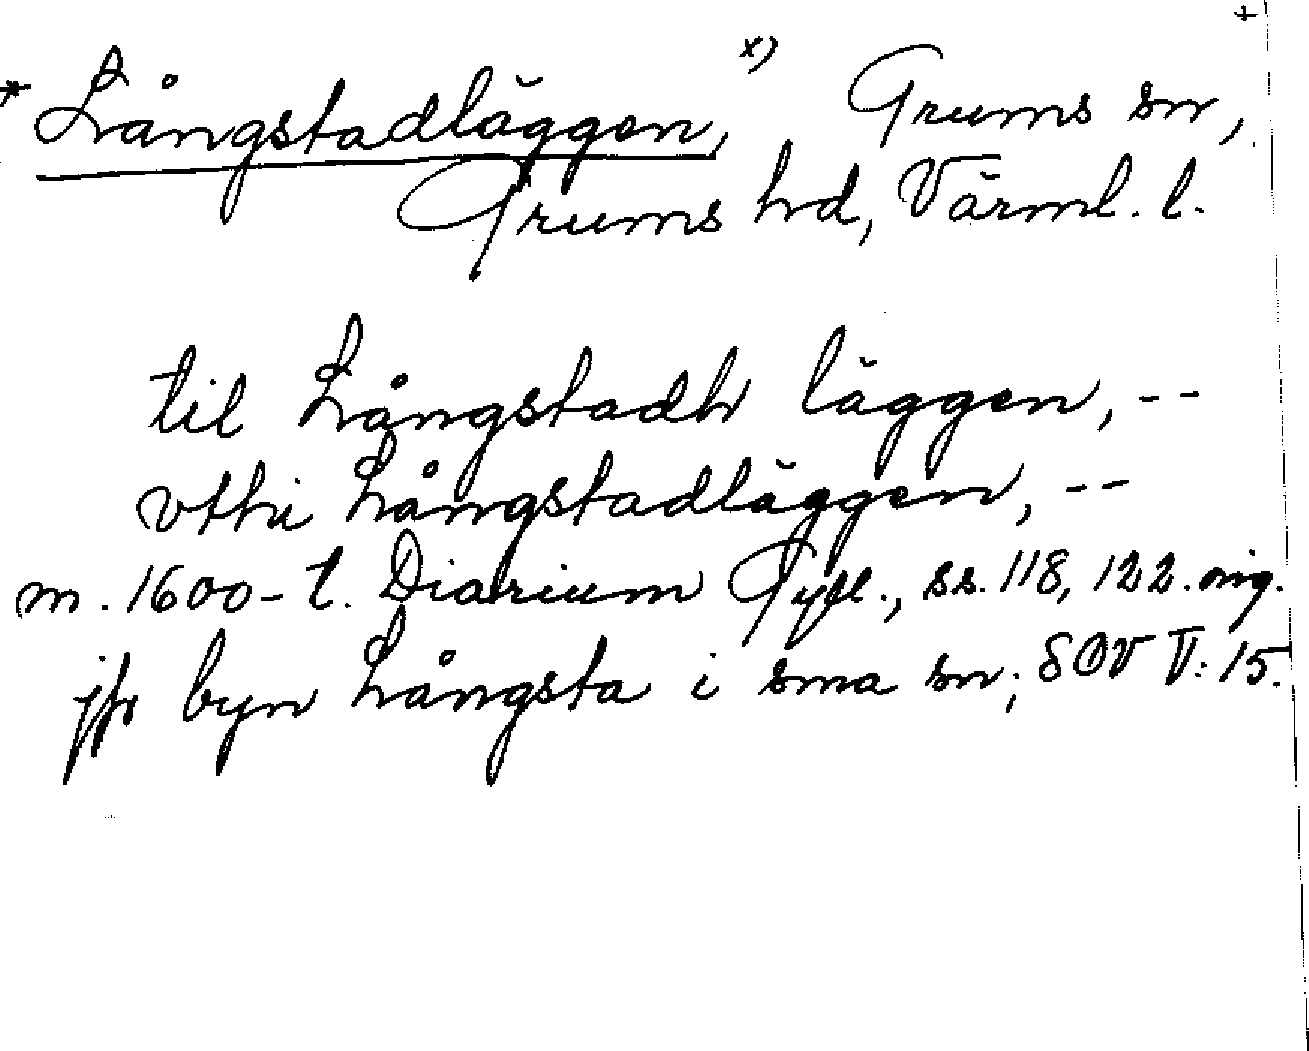 +
* Långstadläggen, x) Grums sn,
Grums hd, Värml. l.
til Långstadh läggen, --
vthi Långstadläggen, --
m. 1600-t. Diarium Gyll., ss. 118, 122. orig.
jfr byn Långsta i sma sn; SOV V: 15.